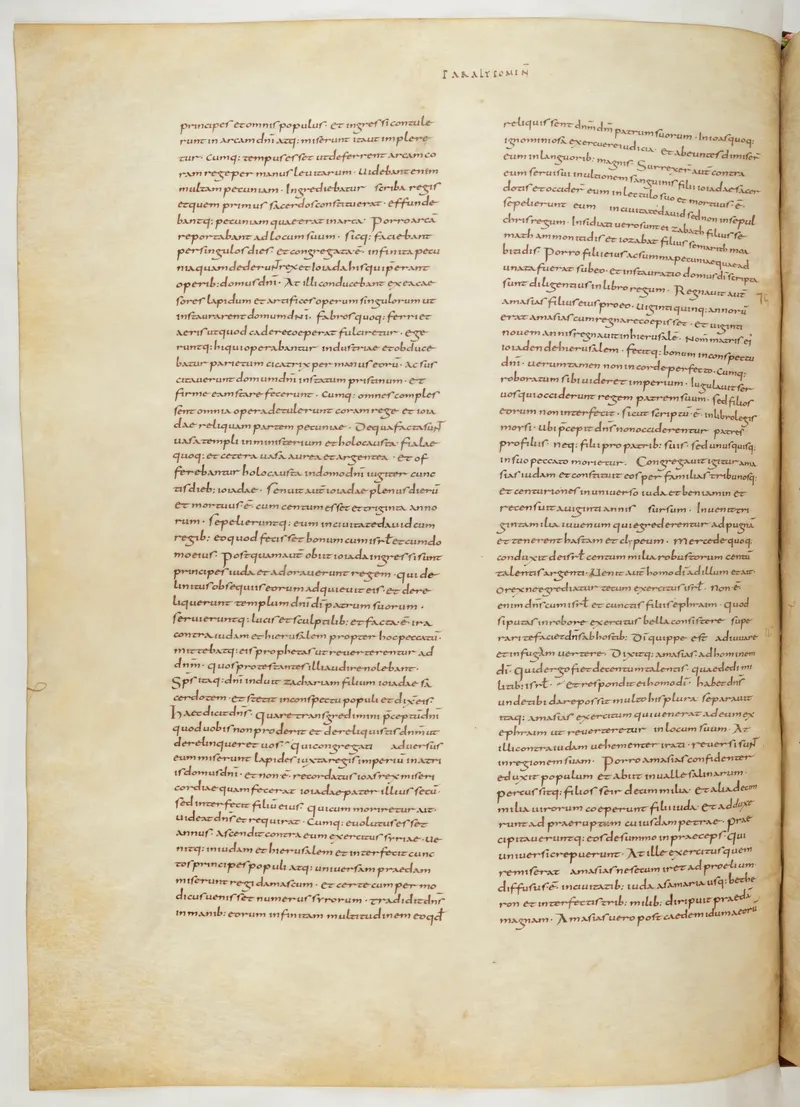 PARALIPOMEN̄
principes et omnis populus · et ingressi contule
runt in arcam dn̄i atq: miserunt ita ut implere
tur · Cumq: tempus esset ut deferrent arcam co
ram rege per manus leuitarum · Uidebant enim
multam pecuniam · Ingrediebatur scriba regis
et quem primus sacerdos constituerat · effunde
bantq: pecuniam quae erat in arca · Porro arcā
reportabant ad locum suum · sicq: faciebant
per singulos dies · et congregata ē · infinita pecu
nia quam dederunt rex et ioiada his qui perant
operib: domus dn̄i · At illi conducebant ex ea cae
sores lapidum et artifices operum singulorum ut
instaurarent domum dn̄i · fabros quoq: ferri et
aeris ut quod cadere coeperat fulciretur · ege
runtq: hi qui operabantur industriae et obduce
batur parietum cicatrix per manus eorū · Ac sus
citauerunt domum dn̄i in statum pristinum · et
firme eam stare fecerunt · Cumq: omnes comples
sent omnia opera detulerunt coram rege et ioia
dae reliquam partem pecuniae · De qua facta sunt
uasa templi in ministerium et holocausta · fialae
quoq: et cetera uasa aurea et argentea · et of
ferebantur holocausta in domo dn̄i iugiter cunc
tis dieb: ioiadae · Senuit aut̄ ioiadae plenus dierū
et mortuus ē · cum centum esset et triginta anno
rum · sepelieruntq: eum in ciuitate dauid cum
regib: eo quod fecisset bonum cum isrł et cum do
mo eius · Postquam aut̄ obiit ioiada ingressi sunt
principes iuda et adorauerunt regem · qui de
linitus obsequiis eorum adquieuit eis · et dere
liquerunt templum dn̄i dī patrum suorum ·
seruieruntq: lucis et sculptilib: et facta ē · ira
contra iudam et hierusalem propter hoc peccatū ·
mittebatq: eis prophetas ut reuerterentur ad
dn̄m · quos protestantes illi audire nolebant ·
Sp̄s itaq: dn̄i induit zachariam filium ioiadae sa
cerdotem · et stetit in conspectu populi et dixit eis ·
Haec dicit dn̄s · Quare transgredimini p̄ceptū dn̄i
quod uobis non proderit et dereliquistis dn̄m ut
derelinqueret uos · qui congregati aduersus
eum miserunt lapides iuxta regis imperiū in atri
is domus dn̄i · et non ē · recordatus ioas rex miseri
cordiae quam fecerat ioiadae pater illius secū ·
sed interfecit filiū eius · qui cum moreretur ait ·
Uideat dn̄s et requirat · Cumq: euolutus esset
annus · Ascendit contra eum exercitus syriae · ue
nitq: in iudam et hierusalem et interfecit cunc
tos principes populi atq: uniuersam praedam
miserunt regi damascum · et certe cum per mo
dicus uenisset numerus syrorum · tradidit dn̄s
in manib: eorum infinitam multitudinem eo qđ
reliquissent dn̄m dm̄ patrum suorum · In ioas quoq:
ignominiosa exercuere iudicia · et abeuntes dimiser̄
eum in languorib: magnis · Surrexer̄ aut̄ contra
eum serui sui in ultionem sanguinis filii ioiadae sacer
dotis et occider̄ eum in lectulo suo et mortuus ē ·
sepelierunt eum in ciuitate dauid sed non in sepul
chris regum · Insidiati uero sunt ei zabath filius se
math ammonitidis et iozabat filius semarith moa
bitidis · Porro filii eius ac summa pecuniae quae ad
unata fuerat sub eo · et instauratio domus dī scripta
sunt diligentius in libro regum · Regnauit aut̄
amasias filius eius pro eo · Uiginti quinq: annorū
erat amasias cum regnare coepisset · et uiginti
nouem annis regnauit in hierusalē · Nom̄ matris ei
ioiaden de hierusalem · fecitq: bonum in conspectu
dn̄i · uerumtamen non in corde perfecto · Cumq:
roboratum sibi uideret imperium · iugulauit ser
uos qui occiderunt regem patrem suum · sed filios
eorum non interfecit · sicut scriptū ē · in libro legis
morsi · ubi p̄cepit dn̄s non occidentur patres
pro filiis · neq: filii pro patrib: suis · sed unusquisq:
in suo peccato morietur · Congregauit igitur ama
sias iudam et constituit eos per familias tribunosq:
et centuriones in uniuerso iuda et beniamin et
recensuit a uiginti annis sursum · Inuenit tri
ginta milia iuuenum qui egrederentur ad pugnā
et tenerent hastam et clypeum · Mercede quoq:
conduxit de isrł centum milia robustorum centū
talentis argenti · Uenit aut̄ homo dī ad illum et ait ·
O rex ne egrediatur tecum exercitus isrł · non ē
enim dn̄s cum isrł et cunctis filiis ephraim · quod
si putas in robore exercitus bella consistere supe
rari te faciet dn̄s ab hostib: Dī quippe est adiuuare
et in fugam uertere · Dixitq: amasias ad hominem
dī · Quid ergo fiet de centum talentis · quae dedi mi
litib: isrł · et respondit ei homo dī · habet dn̄s
unde tibi dare possit multo his plura · separauit
itaq: amasias exercitum qui uenerat ad eum ex
ephraim ut reuerteretur in locum suum · At
illi contra iudam uehementer irati · reuersi sunt
in regionem suam · Porro amasias confidenter
eduxit populum et abiit in ualle salinarum ·
percussitq: filios seir decem milia · et alia decem
milia uirorum coeperunt filii iuda · et addux
runt ad praeruptum cuiusdam petrae · prae
cipitaueruntq: eos de summo in praeceps qui
uniuersi crepuerunt · At ille exercitus quem
remiserat amasias ne secum iret ad proelium
diffusus ē · in ciuitatib: iuda a samaria usq: bethe
ron et interfectis trib: milib: diripuit praedā
magnam · Amasias uero post caedem idumaeorū